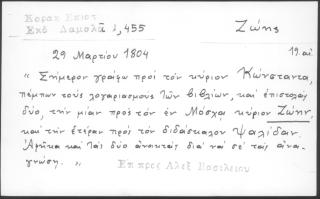 Κοραη Επιστ
Εκδ Δαμαλᾶ 1,455
Ζώης
29 Μαρτίου 1804
19. αἰ
" Σήμερον γράφω πρὸς τὸν κύριον Κώνσταντα,
πέμπων τοὺς λογαριασμοὺς τῶν βιβλίων, καὶ ἐπιστολὰς
δύο, τὴν μίαν πρὸς τὸν ἐν Μόσχᾳ κύριον Ζώην,
καὶ τὴν ἑτέραν πρὸς τὸν διδάσκαλον Ψαλίδαν.
Ἀφῆκα καὶ τὰς δύο ἀνοικτὰς διὰ νὰ σὲ τὰς ἀνα-
γνώση. "
Επ προς Αλεξ Βασιλειου